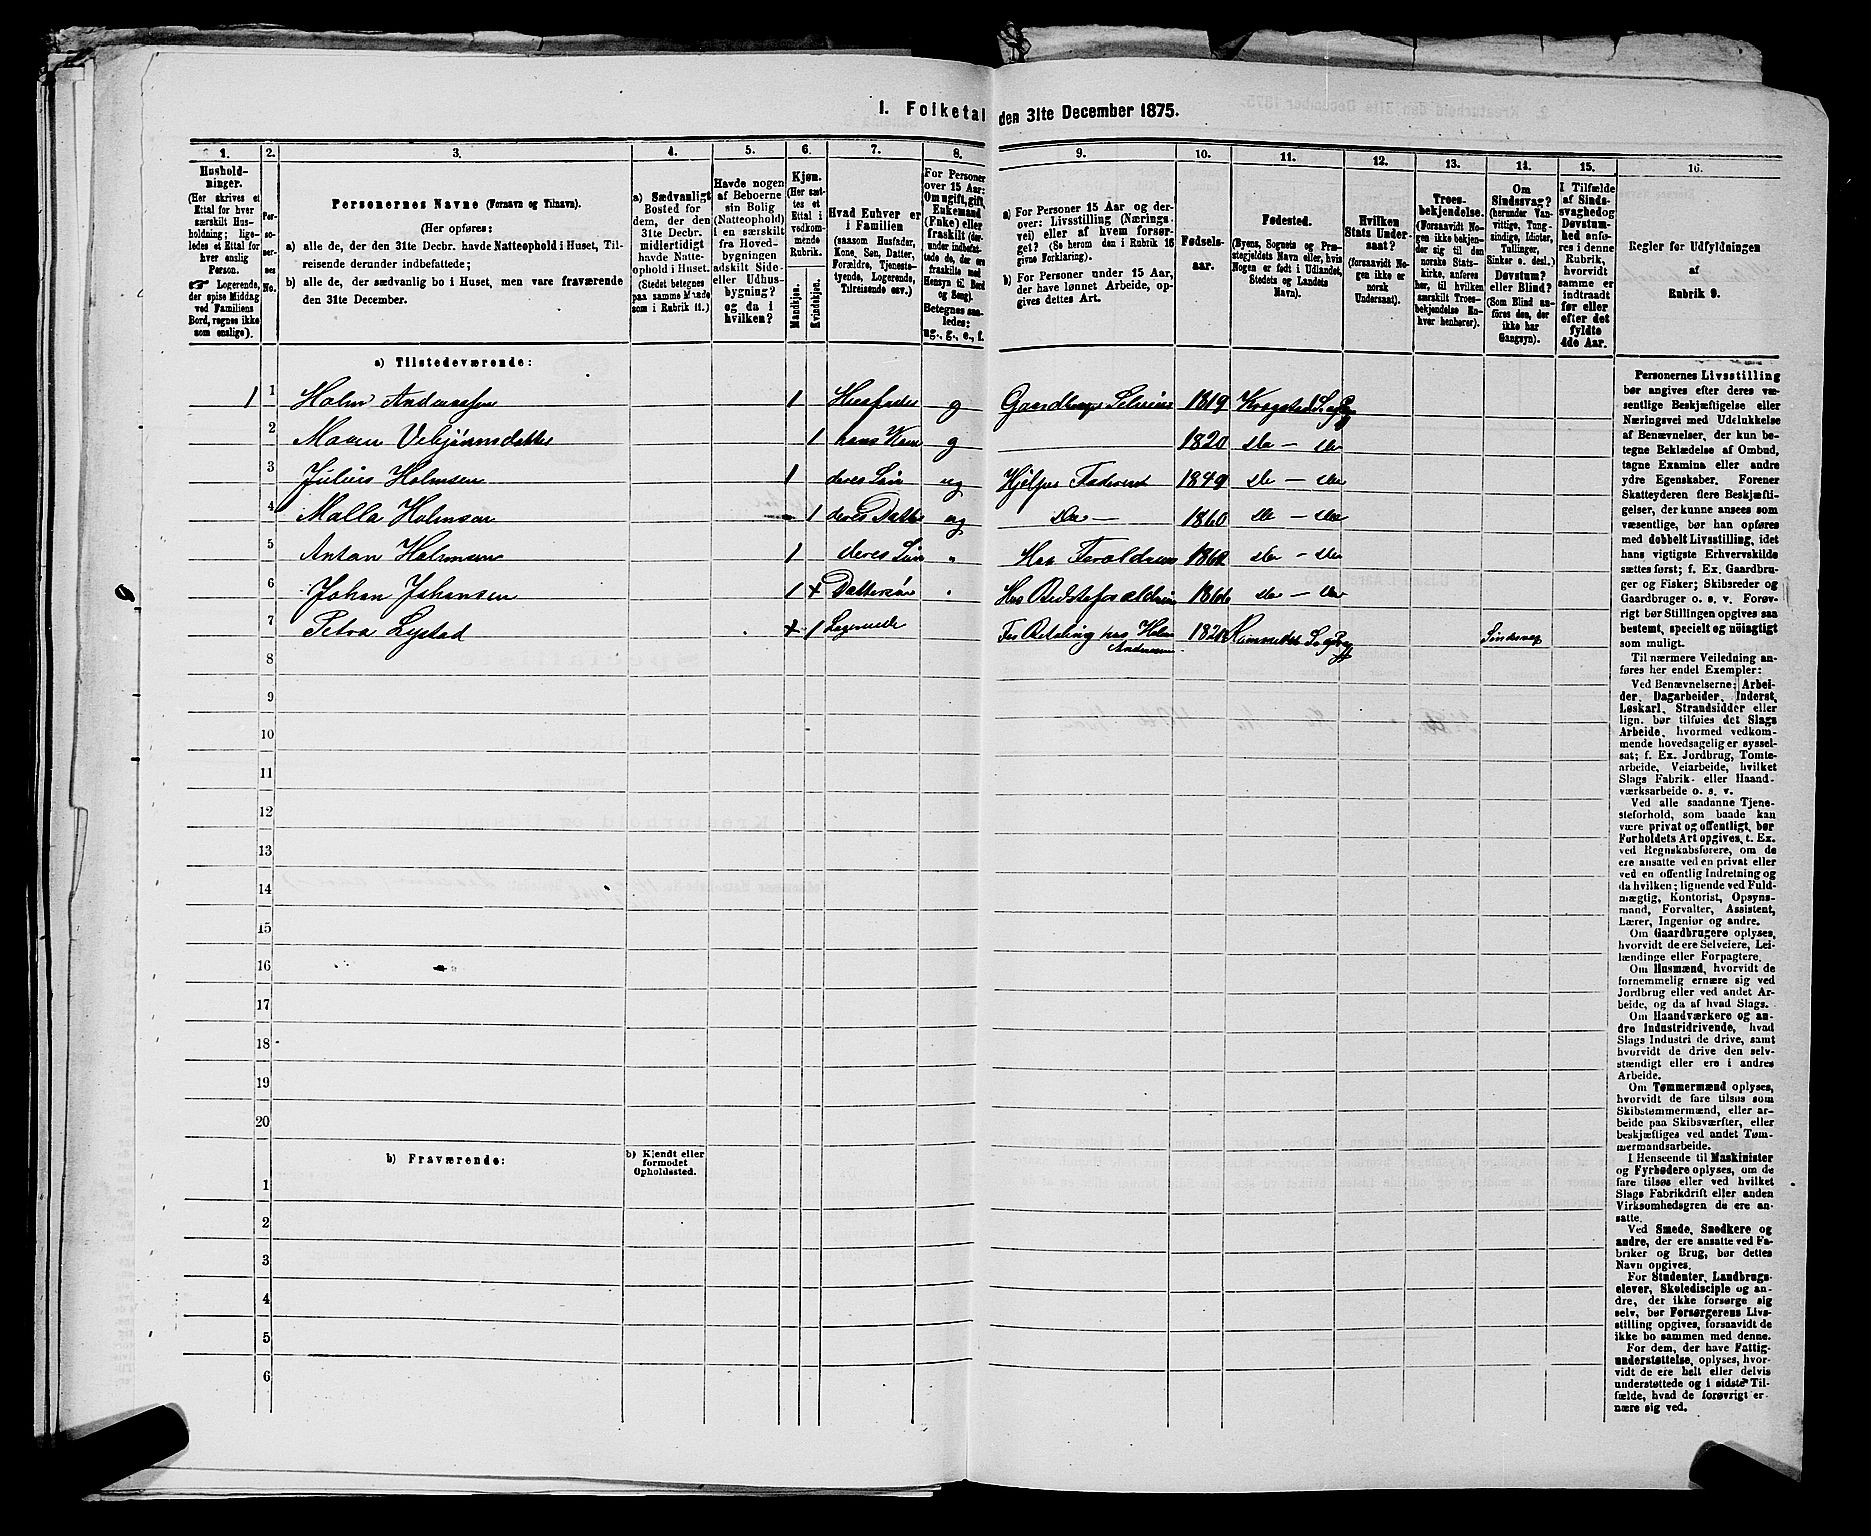 1. Folketal den 31te December 1875.
1. 2. 3. 4. 5. 6. 7. 8. 9. 10. 11. 12. 13. 14. 15. 16.
Hushold-
ninger.
(Her skrives et
Ettal for hver
særskilt Hus-
holdning; lige-
ledes et Ettal for
hver enslig
Person.
☞ Logerende,
der spise Middag
ved Familiens
Bord, regnes ikke
som enslige).
Per-
so-
ner-
nes
No.
Personernes Navne (Fornavn og Tilnavn).
(Her opføres:
a) alle de, der den 31te Decbr. havde Natteophold i Huset, Til-
reisende derunder indbefattede;
b) alle de, der sædvanlig bo i Huset, men vare fraværende
den 31te December.
a) Sædvanligt
Bosted for
dem, der den
31te Decbr.
midlertidigt
havde Natte-
ophold i Huset.
(Stedet betegnes
paa samme Maade
som i Rubrik 11.)
Havde nogen
af Beboerne
sin Bolig
(Natteophold)
i en særskilt
fra Hoved-
bygningen
adskilt Side-
eller Udhus-
bygning?
og da i
hvilken?
Kjøn.
(Her sæt-
tes et
Ettal i
vedkom-
mende
Rubrik.
Mandkjøn.
Kvindekjøn.
Hvad Enhver er
i Familien
(saasom Husfader,
Kone, Søn, Datter,
Forældre, Tjeneste-
tyende, Logerende,
Tilreisende osv.)
For Personer
over 15 Aar:
Om ugift, gift,
Enkemand
(Enke) eller
fraskilt (der-
under indbefat-
tede de, der ere
fraskilte med
Hensyn til Bord
og Seng).
Betegnes saa-
ledes:
ug., g., e., f.
a) For Personer 15 Aar og der-
over: Livsstilling (Nærings-
vei) eller af hvem forsør-
get? (Se herom den i Rubrik 16
givne Forklaring).
b) For Personer under 15 Aar,
der have lønnet Arbeide, op-
gives dettes Art.
Fødsels-
aar.
Fødested.
(Byens, Sognets og Præ-
stegjeldets Navn eller, hvis
Nogen er født i Udlandet,
Stedets og Landets
Navn).
Hvilken
Stats Under-
saat?
(forsaavidt No-
gen ikke er
norsk
Undersaat).
Troes-
bekjendelse.
(Forsaavidt No-
gen ikke bekjen-
der sig til den
norske Stats-
kirke, anføres
her, til hvilken
særskilt Troes-
bekjendelse En-
hver henhører).
Om
Sindssvag?
(herunder Van-
vittige, Tung-
sindige, Idioter,
Tullinger,
Sinker o. desl.)
Døvstum?
eller Blind?
(Som Blind an-
føres den, der
ikke har
Gangsyn).
I Tilfælde
af Sinds-
svaghed og
Døvstum-
hed anfø-
res i denne
Rubrik,
hvorvidt
samme er
indtraadt
før eller
efter det
fyldte
4de Aar.
Regler for Udfyldningen
af
Rubrik 9.
a) Tilstedeværende:
1 1 Holm Anderssen 1 Husfader g Gaardbruger Selveier 1819 Kragstad
2 Maren Vebjørnsdatter 1 hans Kone g 1820 do — do
3 Julius Holmsen 1 deres Søn ug Hjelper Faderen 1849 do — do
4 Malla Holmsen 1 deres Datter ug do — 1860 do — do
5 Anton Holmsen 1 deres Søn " Hos Forældrene 1862 do — do
6 Johan Johansen 1 Dattersøn " Hos Bedsteforældrene 1866 do — do
7 Petra Lystad 1 Logerende For Betaling hos Holm Anderssen 182 Sindssvag
8
9
10
11
12
13
14
15
16
17
18
19
20
b) Fraværende:
b) Kjendt eller
formodet
Opholdssted.
1
2
3
4
5
6
Personernes Livsstilling
bør angives efter deres væ-
sentlige Beskjæftigelse eller
Næringsvei med Udelukkelse
af Benævnelser, der kun be-
tegne Beklædelse af Ombud,
tagne Examina eller andre
ydre Egenskaber. Forener
Skatteyderen flere Beskjæfti-
gelser, der kunne ansees som
væsentlige, bør han opføres
med dobbelt Livsstilling, idet
hans vigtigste Erhvervskilde
sættes først; f. Ex. Gaardbru-
ger og Fisker; Skibsreder og
Gaardbruger o. s. v. Forøv-
rigt bør Stillingen opgives saa
bestemt, specielt og nøiagtigt
som muligt.
Til nærmere Veiledning an-
føres her endel Exempler:
Ved Benævnelserne: Arbei-
der, Dagarbeider, Inderst,
Løskarl, Strandsidder eller
lign. bør tilføies det Slags
Arbeide, hvormed vedkom-
mende hovedsagelig er syssel-
sat; f. Ex. Jordbrug, Tomte-
arbeide, Veiarbeide, hvilket
Slags Fabrik- eller Haand-
værksarbeide o. s. v.
Ved alle saadanne Tjene-
steforhold, som baade kan
være privat og offentligt, bør
Forholdets Art opgives, t. Ex.
ved Regnskabsførere, om de
ere ansatte ved en privat eller
ved en offentlig Indretning og
da hvilken; lignende ved Fuld-
mægtig, Kontorist, Opsyns-
mand, Forvalter, Assistent,
Lærer, Ingeniør og andre.
Om Gaardbrugere oplyses,
hvorvidt de ere Selveiere, Lei-
lændinge eller Forpagtere.
Om Husmænd, hvorvidt de
fornemmelig ernære sig ved
Jordbrug eller ved andet Ar-
beide, og da af hvad Slags.
Om Haandværkere og an-
dre Industridrivende, hvad
Slags Industri de drive, samt
hvorvidt de drive den selv-
stændigt eller ere i andres
Arbeide.
Om Tømmermænd oplyses,
hvorvidt de fare tilsøs som
Skibstømmermænd, eller ar-
beide paa Skibsværfter, eller
beskjæftiges ved andet Tøm-
mermandsarbeide.
I Henseende til Maskinister
og Fyrbødere oplyses, om de
fare tilsøs eller ved hvilket
Slags Fabrikdrift eller anden
Virksomhedsgren de ere an-
satte.
Ved Smede, Snedkere og
andre, der ere ansatte ved Fa-
briker og Brug, bør dettes
Navn opgives.
For Studenter, Landbrugs-
elever, Skoledisciple og an-
dre, der ikke forsørge sig
selv, bør Forsørgerens Livs-
stilling opgives, forsaavidt de
ikke bo sammen med denne.
For dem, der have Fattig-
understøttelse, oplyses, hvor-
vidt de ere helt eller delvis
understøttede og i sidste Til-
fælde, hvad de forøvrigt er-
nære sig ved.